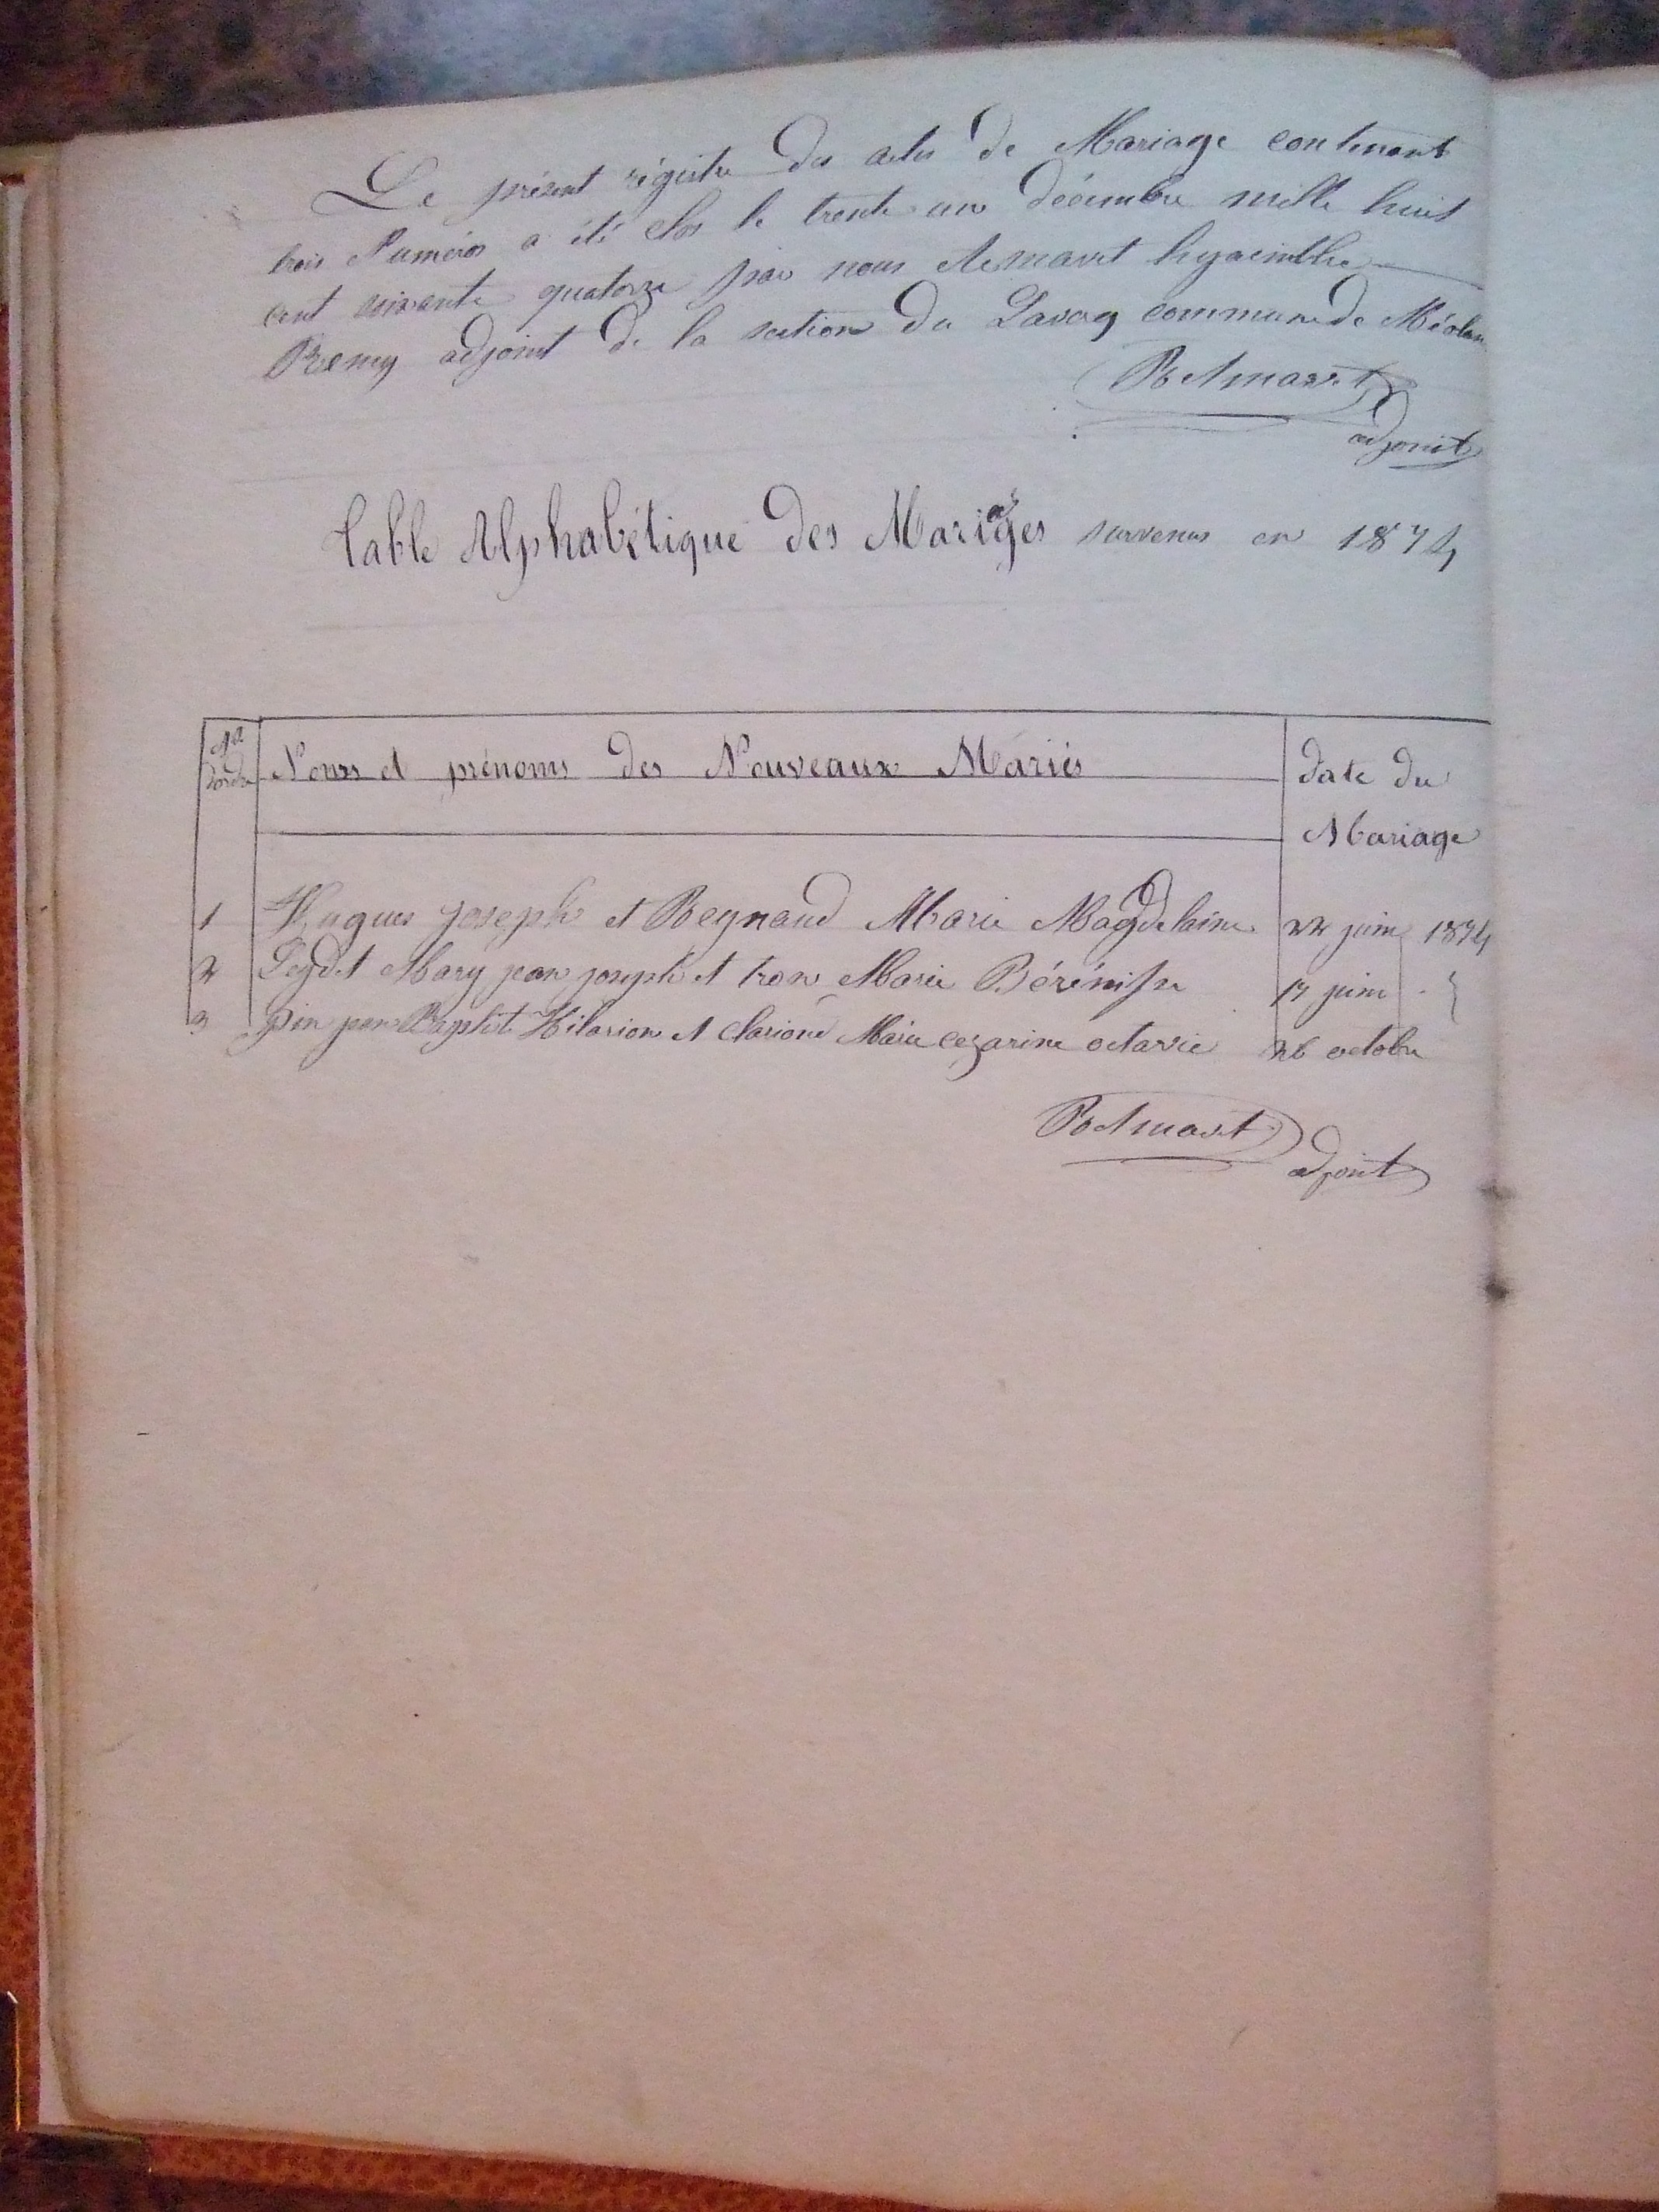 Le présent régistre des actes de Mariage contenant
trois Numéros a été clos le trente un décembre mille huit
cent soixante quatorze par nous hyacinthe
Remy adjoint de la section du Lavercq commune de Méolans
adjoint
table Alphabétique des Mariages survenus en 1874
Nº d'ordre Noms et prénoms des Nouveaux Mariés date du
Mariage
1 Hugues joseph et Reynaud Marie Magdelaine 22 juin 1874
2 Leydet Mary jean joseph et tron Marie Bérénisse 17 juin
3 pin jean Baptiste Hilarion et clariond Marie cezarine octavie 26 octobre
adjoint